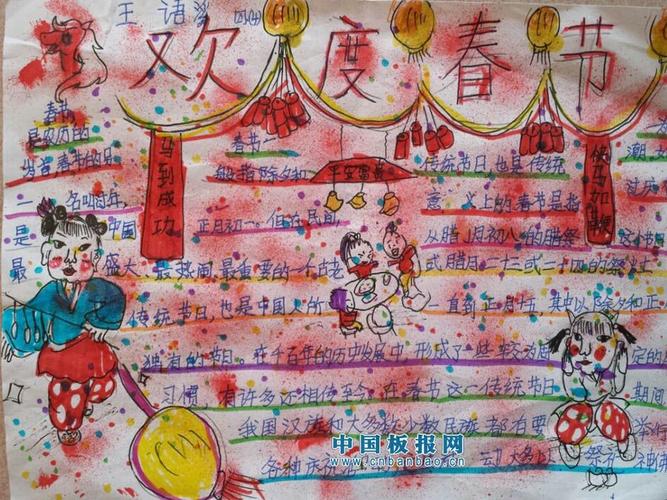 王语 四(4)
欢度春节
马到成功
平安富贵
快马加鞭
春节, 春节一 传统节日,也是传统 潮,
是农历的 般指除夕和 意义上的春节是指
岁首春节的另
一名叫过年, 正月初一。但在民间, 从腊月初八的腊祭 这个节
是中国
最盛大、最热闹、最重要的一个古老 或腊月二十三或二十四的祭灶
传统节日,也是中国人的 一直到正月十五,其中以除夕和正
独有的节日。在千百年的历史发展中,形成了一些较为固 定的
习惯,有许多还相传至今。在春节这一传统节日 期间
我国汉族和大多数少数民族都有要
各种 动大多以 祭祀 神
中国板报网
www.cnbanbao.cn